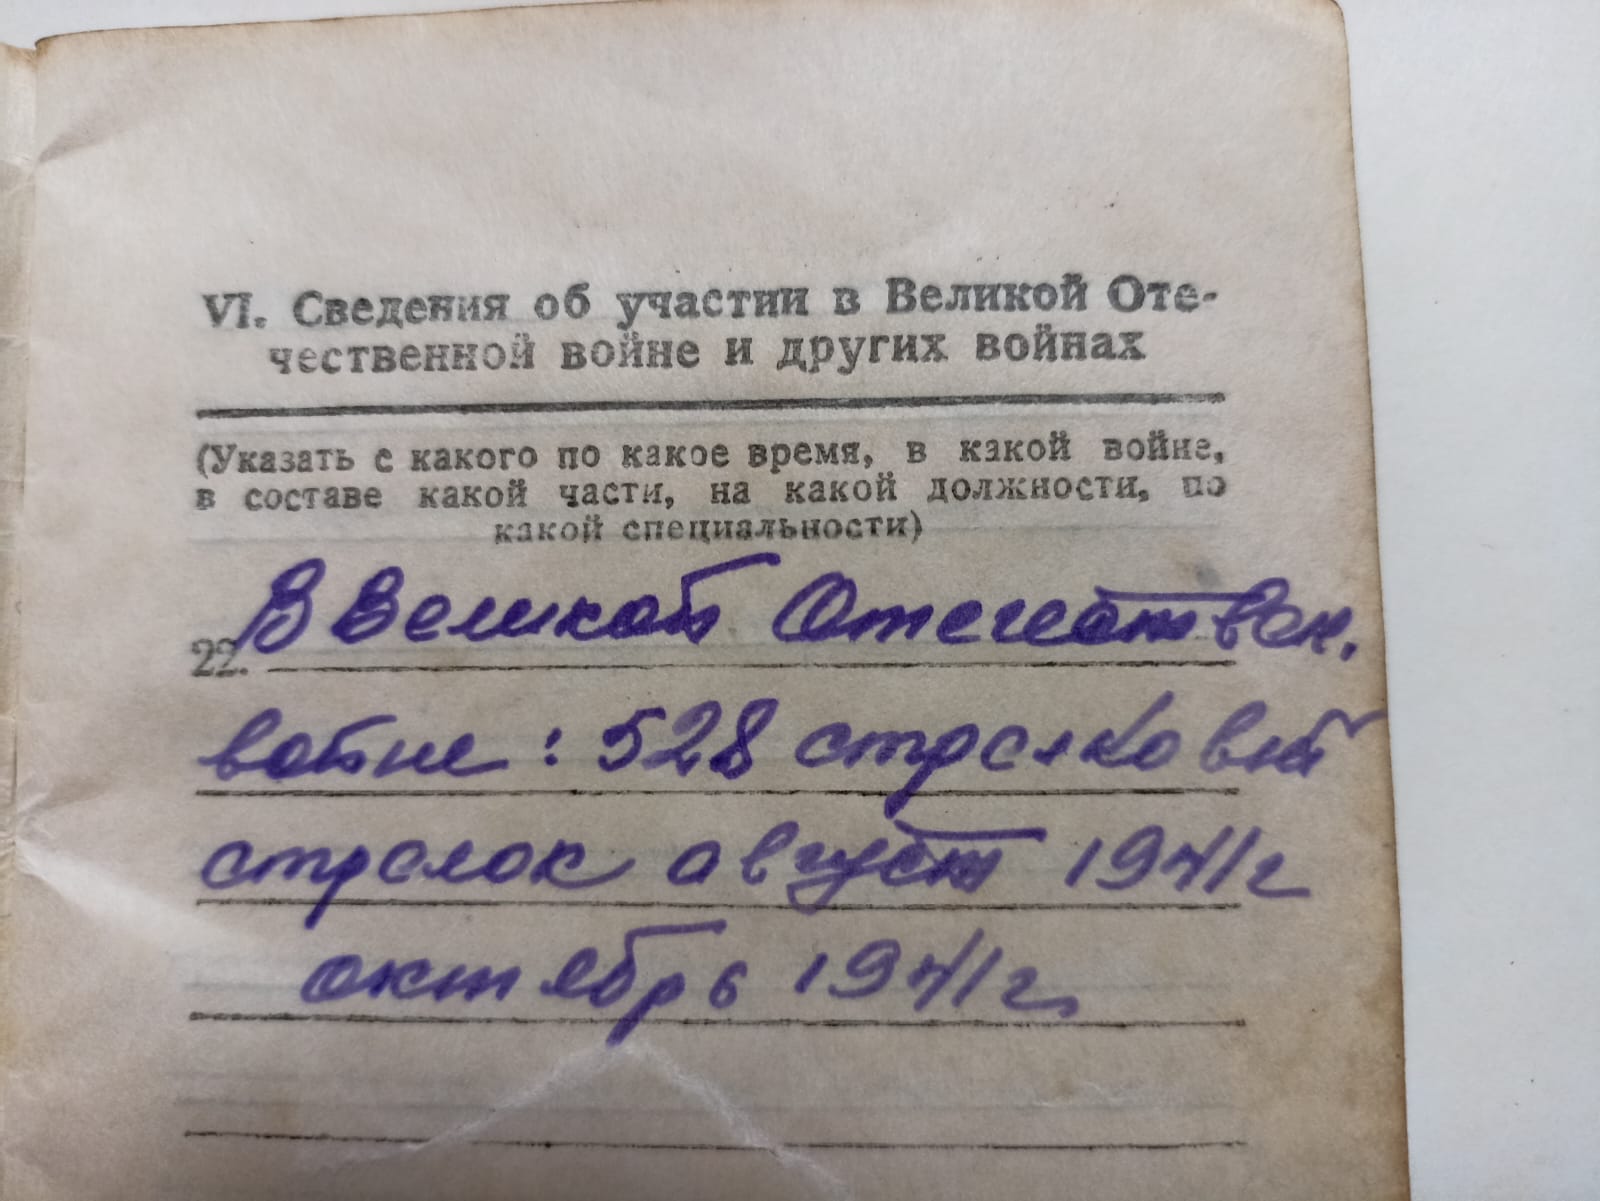 VI. Сведения об участии в Великой Оте-
чественной войне и других войнах
(Указать с какого по какое время, в какой войне,
в составе какой части, на какой должности, по
какой специальности)
22. В Великой Отечествен.
войне : 528 стрелковый
стрелок август 1941г
октябрь 1941г.